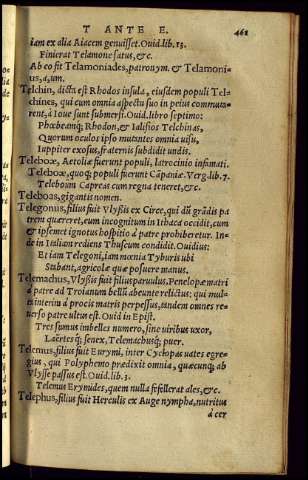 T ANTE E.
462
iam ex alia Aiacem genuisset. Ouid. lib. 13.
Finierat Telamone satus, &c.
Ab eo fit Telamoniades, patronym. & Telamoni-
us, a, um.
Telchin, dicta est Rhodos insula, eiusdem populi Tel-
chines, qui cum omnia aspectu suo in peius commuta-
rent, à Ioue sunt submersi. Ouid. libro septimo:
Phœbeamq; Rhodon, & Ialisios Telchinas,
Quorum oculos ipso mutantes omnia uisu,
Iuppiter exosus, fraternis subdidit undis.
Teleboæ, Aetoliæ fuerunt populi, latrocinio infamati.
Teleboæ, quoq; populi fuerunt Cāpaniæ. Verg. lib. 7.
Teleboum Capreas cum regna teneret, &c.
Teleboas, gigantis nomen.
Telegonus, filius fuit Vlyssis ex Circe, qui dū grādis pa
trem quæreret, eum incognitum in Ithaca occidit, cum
& ipsemet ignotus hospitio à patre prohiberetur. In-
de in Italiam rediens Thuscum condidit. Ouidius:
Et iam Telegoni, iam mœnia Tyburis ubi
Stabant, agricolæ quæ posuere manus.
Telemachus, Vlyssis fuit filius paruulus, Penelopæ matri
à patre ad Troianum bellū abeunte relictus: qui mul-
ta interim à procis matris perpessus, tandem omnes re
uerso patre ultus est. Ouid in Epist.
Tres sumus imbelles numero, sine uiribus uxor,
Laërtesq; senex, Telemachusq; puer.
Telemus, filius fuit Eurymi, inter Cyclopas uates egre-
gius, qui Polyphemo prædixit omnia, quæcunq; ab
Vlysse passus est. Ouid. lib. 3.
Telemus Erymides, quem nulla fefellerat ales, &c.
Telephus, filius fuit Herculis ex Auge nympha, nutritus
à cer